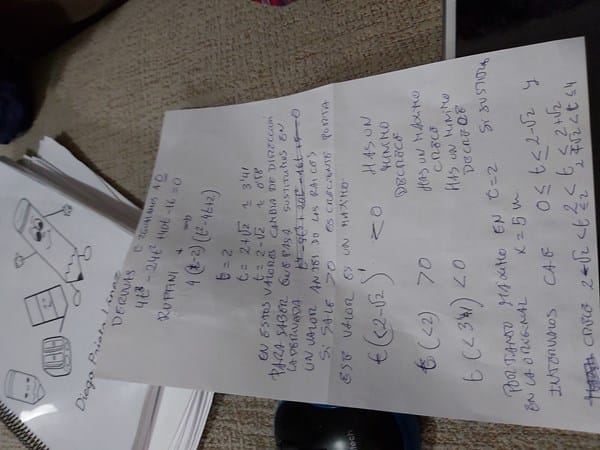 DERIVAS E IGUALAMOS A 0
4t³ - 24t² + 40t - 16 = 0
RUFFINI
4(t-2)(t²-4t+2)
t = 2
t = 2+√2 ≈ 3'41
t = 2-√2 ≈ 0'58
EN ESTOS VALORES CAMBIA DE DIRECCION
PARA SABER QUE PASA SUSTITUIMOS EN
LA DERIVADA
UN VALOR ANTES DE LAS RAICES
SI SALE >0 ES CRECIENTE POR TA
ESE VALOR ES UN MAXIMO
t (<2-√2) < 0 HAS UN
MINIMO
DECRECE
t (<2) > 0 HAS UN MAXIMO
CRECE
t (<3'41) < 0 HAS UN MINIMO
DECRECE
POR TANTO MAXIMO EN t = 2 SI SUSTITUYES
EN LA ORIGINAL x = 5 m
INTERVALOS CAE 0 ≤ t ≤ 2-√2 y
2 ≤ t ≤ 2+√2
CRECE 2-√2 < t ≤ 2 2+√2 < t ≤ 4
Diego Prieto
tech